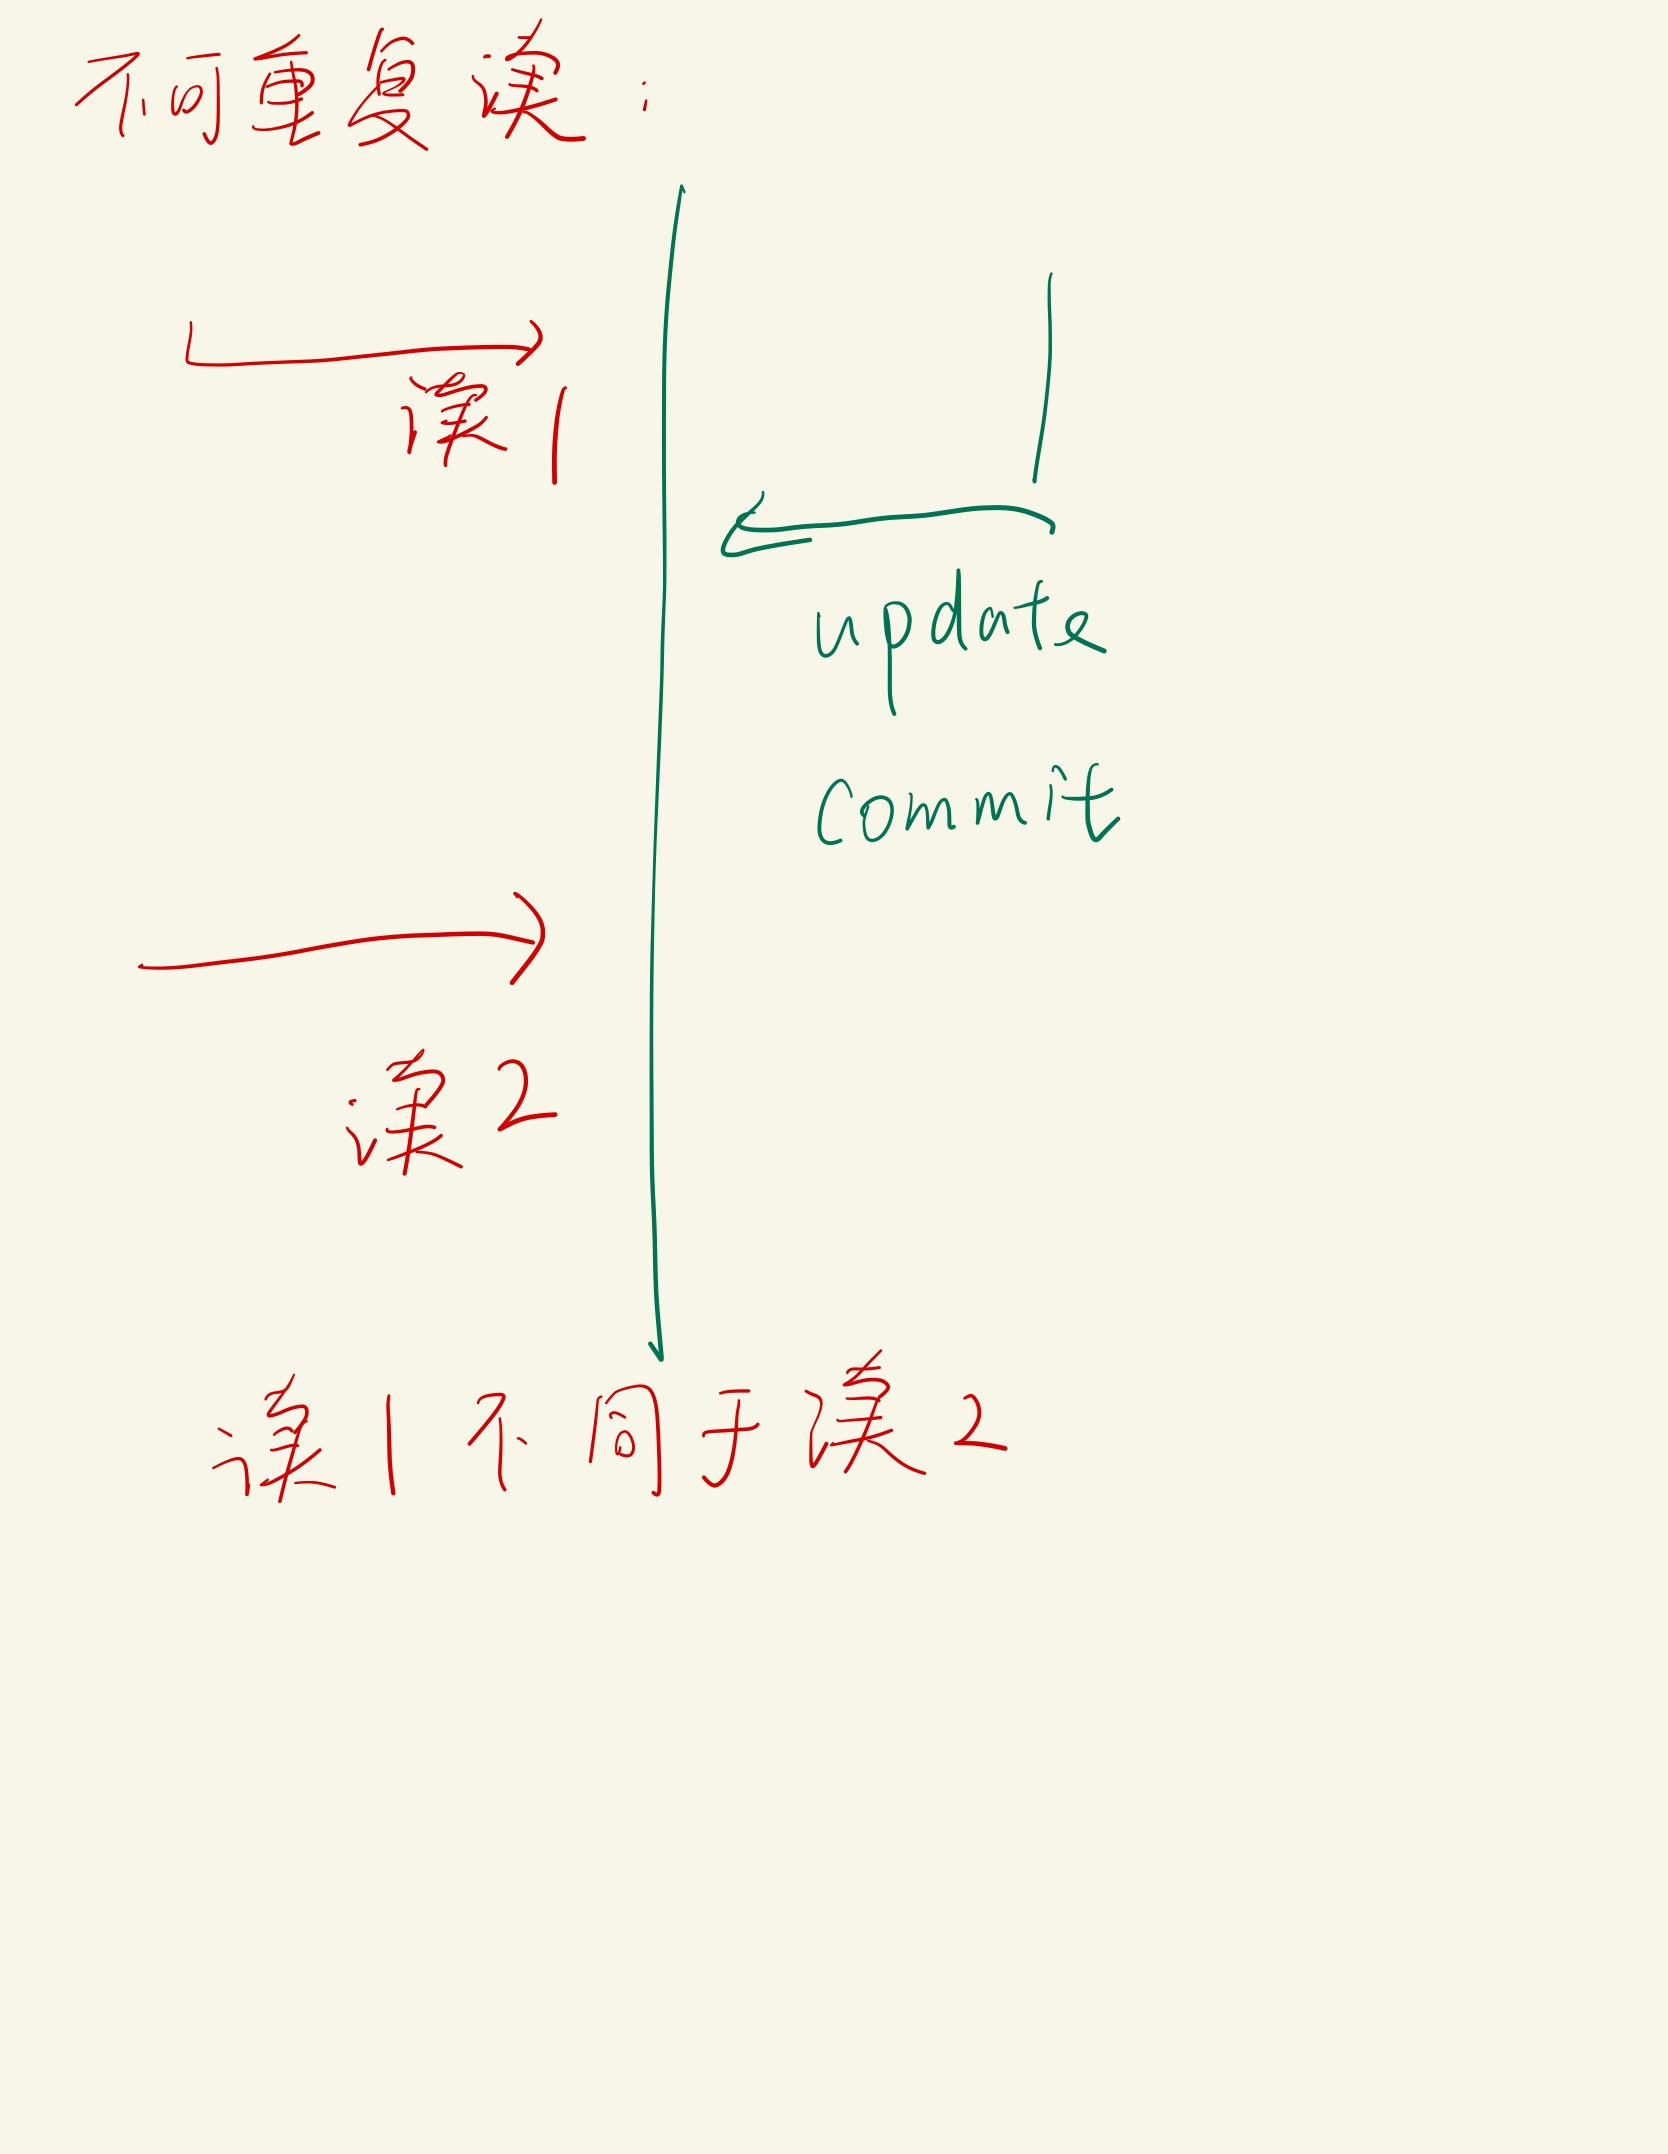 不可重复读：
读1
update
commit
读2
读1不同于读2